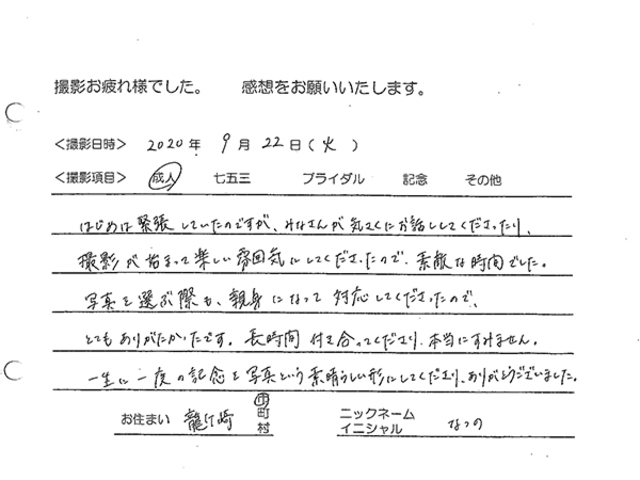 撮影お疲れ様でした。 感想をお願いいたします。
<撮影日時> 2020年 9月 22日(火)
<撮影項目> 成人 七五三 ブライダル 記念 その他
はじめは緊張していたのですが、みなさんが気さくにお話ししてくださったり、
撮影が始まって楽しい雰囲気にしてくださったので、素敵な時間でした。
写真を選ぶ際も、親身になって対応してくださったので、
とてもありがたかったです。長時間付き合ってくださり、本当にすみません。
一生に一度の記念を写真という素晴らしい形にしてくださり、ありがとうございました。
お住まい 龍ケ崎 市町村 ニックネーム イニシャル なつの